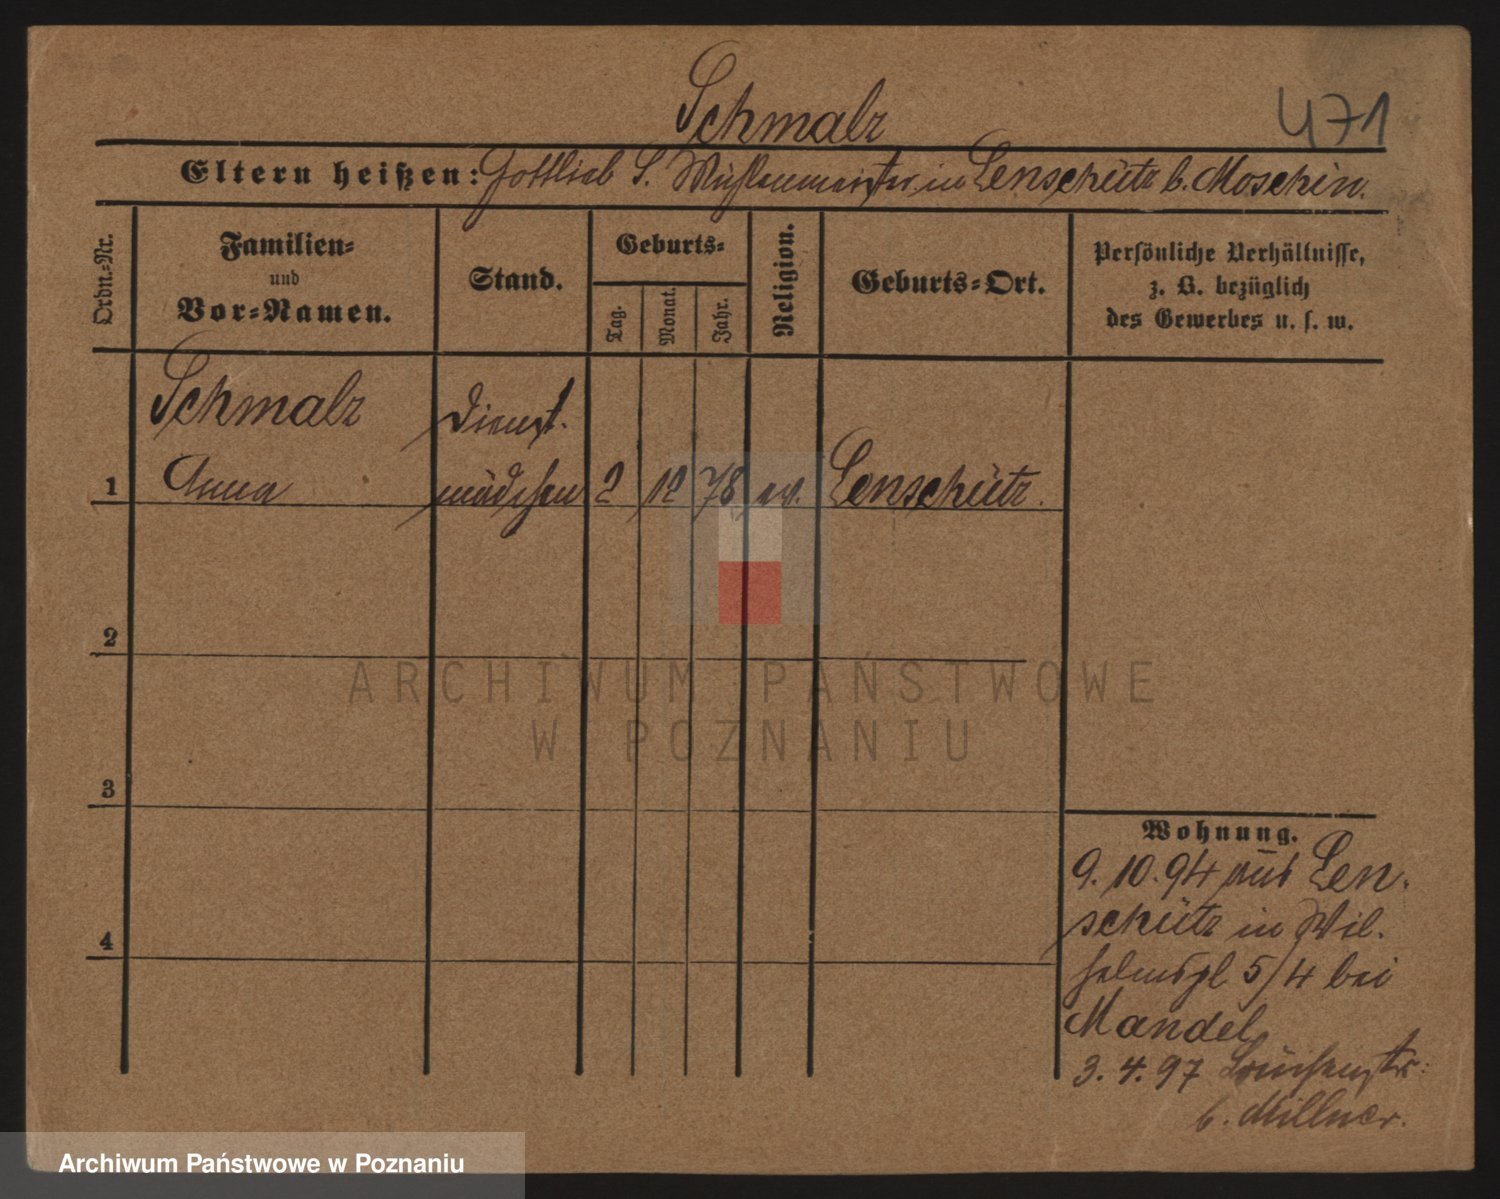 Schmalz
471
Eltern heißen: Gottlieb S. Mühlenmeister in Lenschütz b. Moschin.
Ordn.-Nr.
Familien-
und
Vor-Namen.
Stand.
Geburts-
Tag.
Monat.
Jahr.
Religion.
Geburts-Ort.
Persönliche Verhältnisse,
z. B. bezüglich
des Gewerbes u. s. w.
Schmalz Dienst-
1 Anna mädchen 2 12 78 ev. Lenschütz.
2
3
4
Wohnung.
9. 10. 94 aus Len-
schütz in Wil-
helmspl 5/4 bei
Mandel
3. 4. 97
b. Millner.
ARCHIWUM PAŃSTWOWE
W POZNANIU
Archiwum Państwowe w Poznaniu